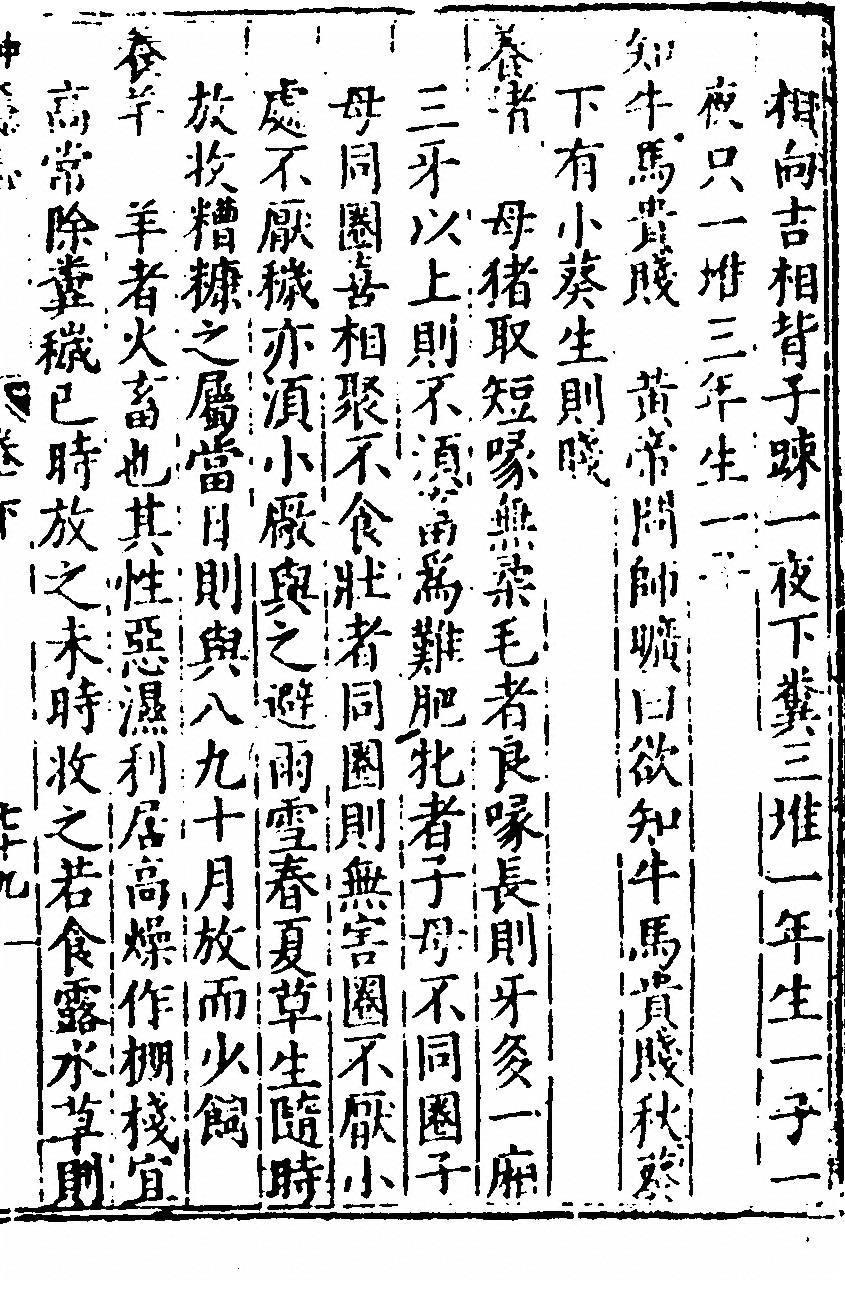 相向吉相背子踈一夜下糞三堆一年生一子一
夜只一堆三年生一子
知牛馬貴賤　黄帝問師曠曰欲知牛馬貴賤秋葵
下有小葵生則賤
養猪　母猪取短喙無柔毛者良喙長則牙多一廂
三牙以上則不湏畜爲難肥牝者子母不同圈子
母同圈喜相聚不食壯者同圈則無害圈不厭小
處不厭穢亦湏小厰與之避雨雪春夏草生隨時
放牧糟糠之屬當日則與八九十月放而少飼
養羊　羊者火畜也其性惡濕利居高燥作棚棧宜
高常除糞穢巳時放之未時收之若食露水草則
卷下
七十九